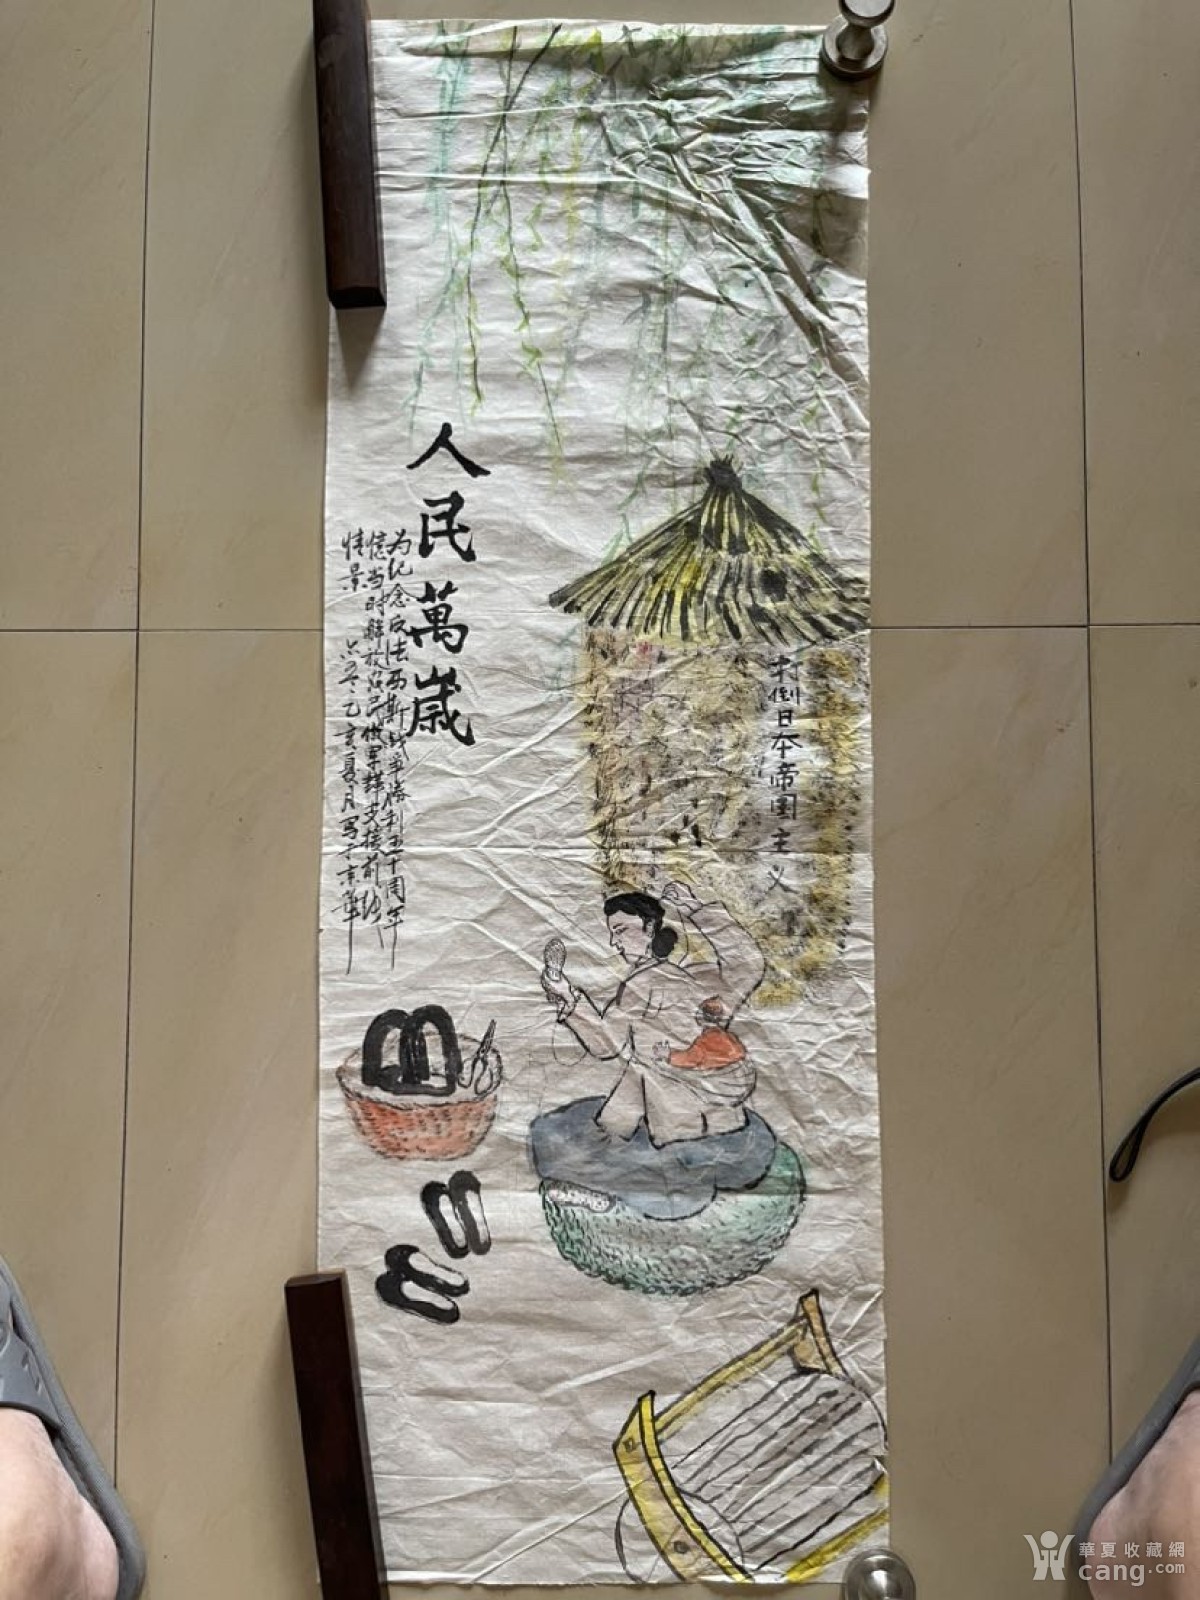 人民萬歲
为纪念反法西斯战争胜利五十周年
忆当时解放区民做军鞋支援前线
情景 乙亥夏月写于京华
打倒日本帝国主义
華夏收藏網
cang.com